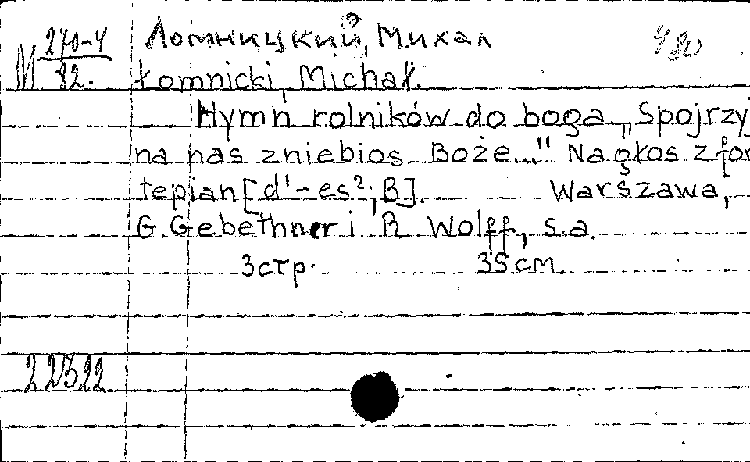 М 270-4
82.
Ломницкий, Михал
Łomnicki, Michał.
Hymn rolników do boga „Spojrzyj
na nas zniebios Boże..." Na głos z for
tepian [d'-es²; B]. Warszawa,
G. Gebethner i R. Wolff, s.a.
3 стр. 35 cm.
22322